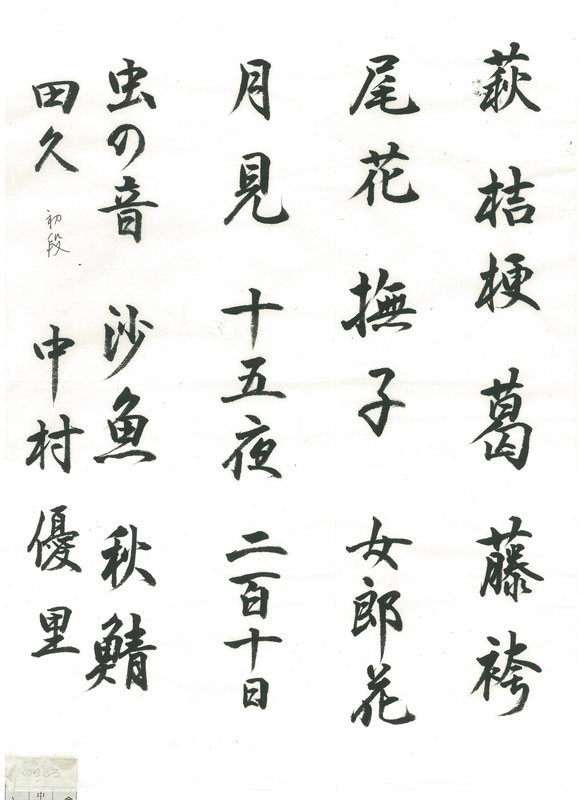 萩 桔梗 葛 藤袴
尾花 撫子 女郎花
月見 十五夜 二百十日
虫の音 沙魚 秋鯖
田久 初段 中村優里
のりしろ
中